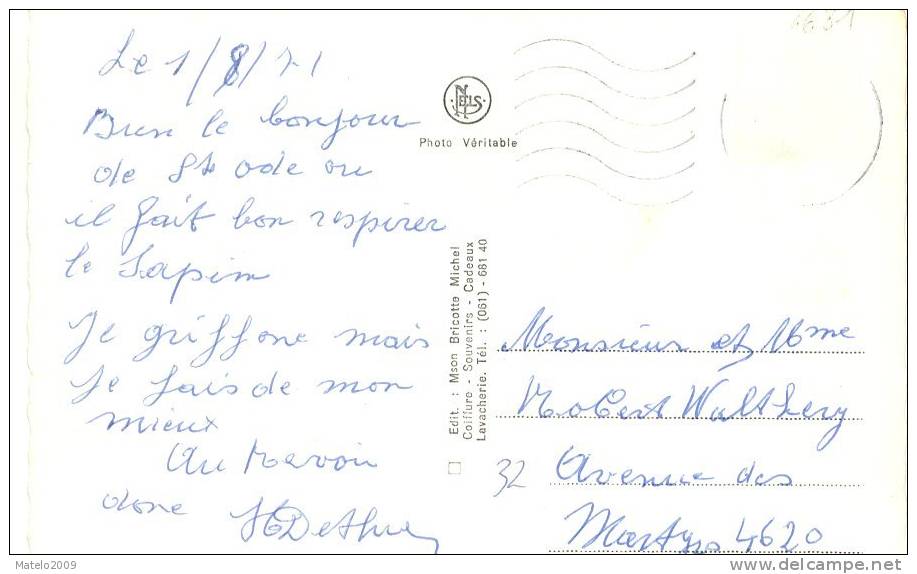 Le 1/8/71
Bien le bonjour
de Ste ode ou
il fait bon respirer
le Sapin
Je griffone mais
Je fais de mon
mieux
Au Revoir
donc
NELS
Photo Véritable
Edit. : Mson Bricotte Michel
Coiffure - Souvenirs - Cadeaux
Lavacherie. Tél. : (061) - 681 40
Monsieur et Mme
Robert Walthery
32 Avenue des
Martyrs 4620
Matelo2009
delcampe.net